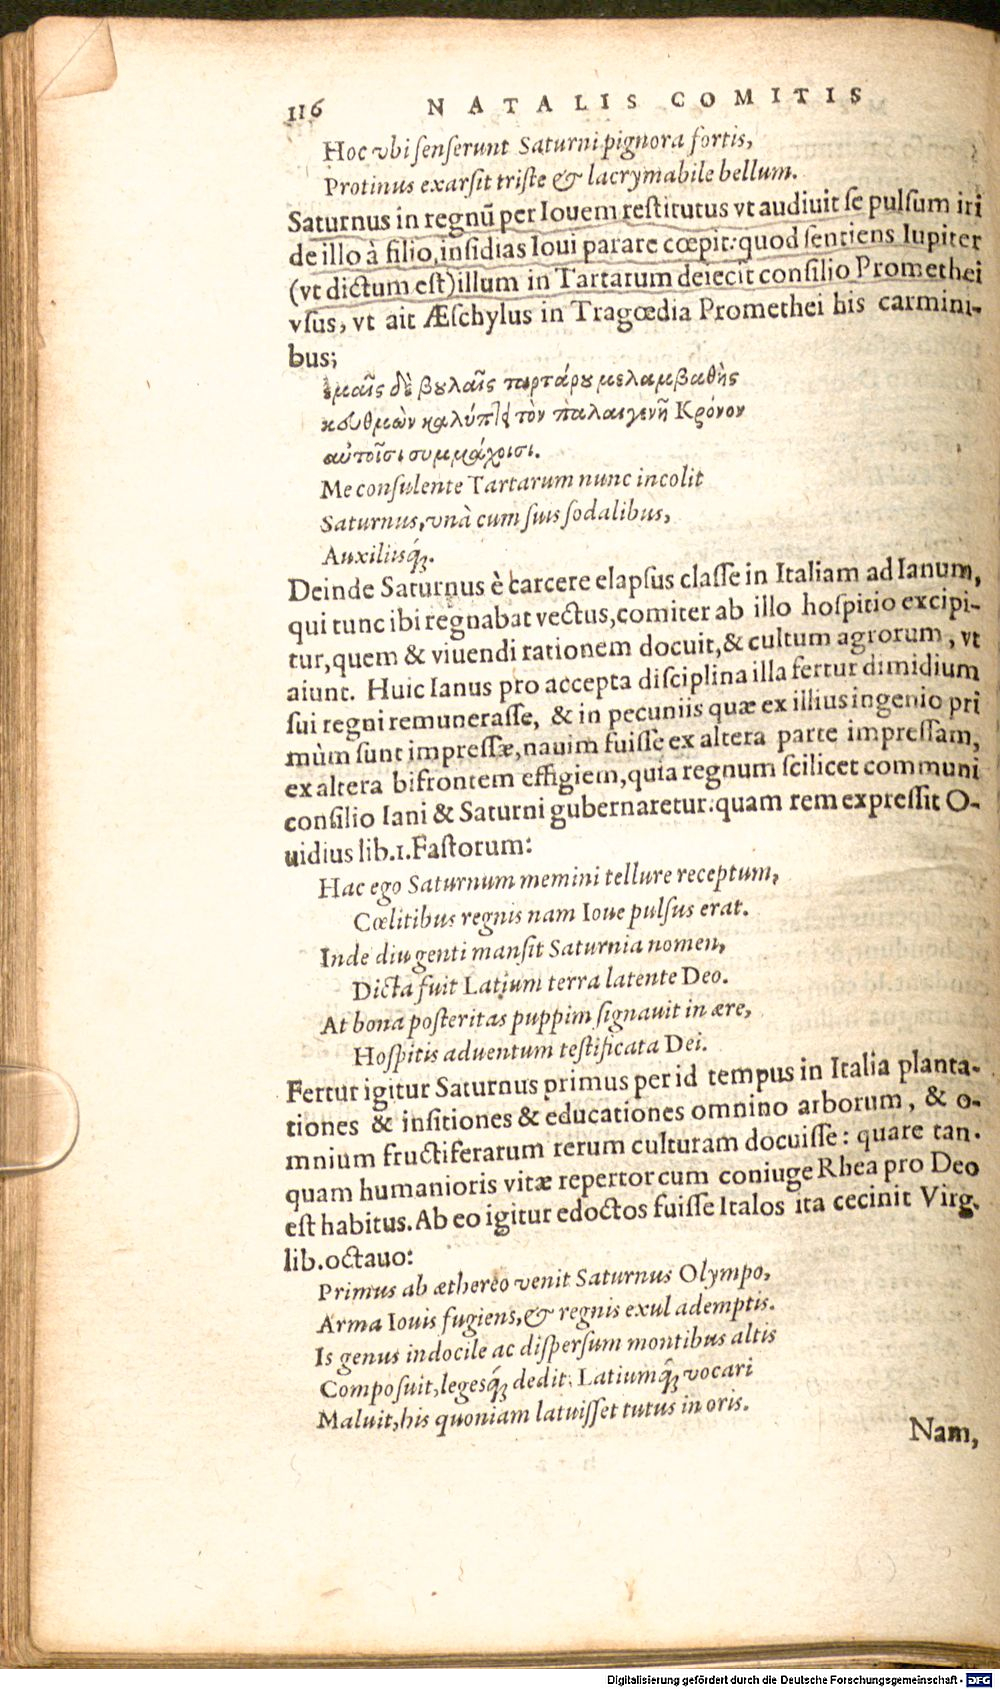 116 NATALIS COMITIS
Hoc vbi ſenſerunt Saturni pignora fortis,
Protinus exarſit triſte & lacrymabile bellum.
Saturnus in regnū per Iouem reſtitutus vt audiuit ſe pulſum iri
de illo à filio, inſidias Ioui parare cœpit: quod ſentiens Iupiter
(vt dictum eſt) illum in Tartarum deiecit conſilio Promethei
vſus, vt ait Æſchylus in Tragœdia Promethei his carmini-
bus;
ἐμαῖς δὲ βουλαῖς ταρτάρου μελαμβαθὴς
κευθμὼν καλύπτει τὸν παλαιγενῆ Κρόνον
αὐτοῖσι συμμάχοισι.
Me conſulente Tartarum nunc incolit
Saturnus, vnà cum ſuis ſodalibus,
Auxiliisq́;.
Deinde Saturnus è carcere elapſus claſſe in Italiam ad Ianum,
qui tunc ibi regnabat vectus, comiter ab illo hoſpitio excipi-
tur, quem & viuendi rationem docuit, & cultum agrorum, vt
aiunt. Huic Ianus pro accepta diſciplina illa fertur dimidium
ſui regni remuneraſſe, & in pecuniis quæ ex illius ingenio pri
mùm ſunt impreſſæ, nauim fuiſſe ex altera parte impreſſam,
ex altera bifrontem effigiem, quia regnum ſcilicet communi
conſilio Iani & Saturni gubernaretur: quam rem expreſſit O-
uidius lib.1. Faſtorum:
Hac ego Saturnum memini tellure receptum,
Cœlitibus regnis nam Ioue pulſus erat.
Inde diu genti manſit Saturnia nomen,
Dicta fuit Latium terra latente Deo.
At bona poſteritas puppim ſignauit in ære,
Hoſpitis aduentum teſtificata Dei.
Fertur igitur Saturnus primus per id tempus in Italia planta-
tiones & inſitiones & educationes omnino arborum, & o-
mnium fructiferarum rerum culturam docuiſſe: quare tan-
quam humanioris vitæ repertor cum coniuge Rhea pro Deo
eſt habitus. Ab eo igitur edoctos fuiſſe Italos ita cecinit Virg.
lib. octauo:
Primus ab æthereo venit Saturnus Olympo,
Arma Iouis fugiens, & regnis exul ademptis.
Is genus indocile ac diſperſum montibus altis
Compoſuit, legesq́; dedit: Latiumq́; vocari
Maluit, his quoniam latuiſſet tutus in oris.
Nam,
Digitalisierung gefördert durch die Deutsche Forschungsgemeinschaft - DFG